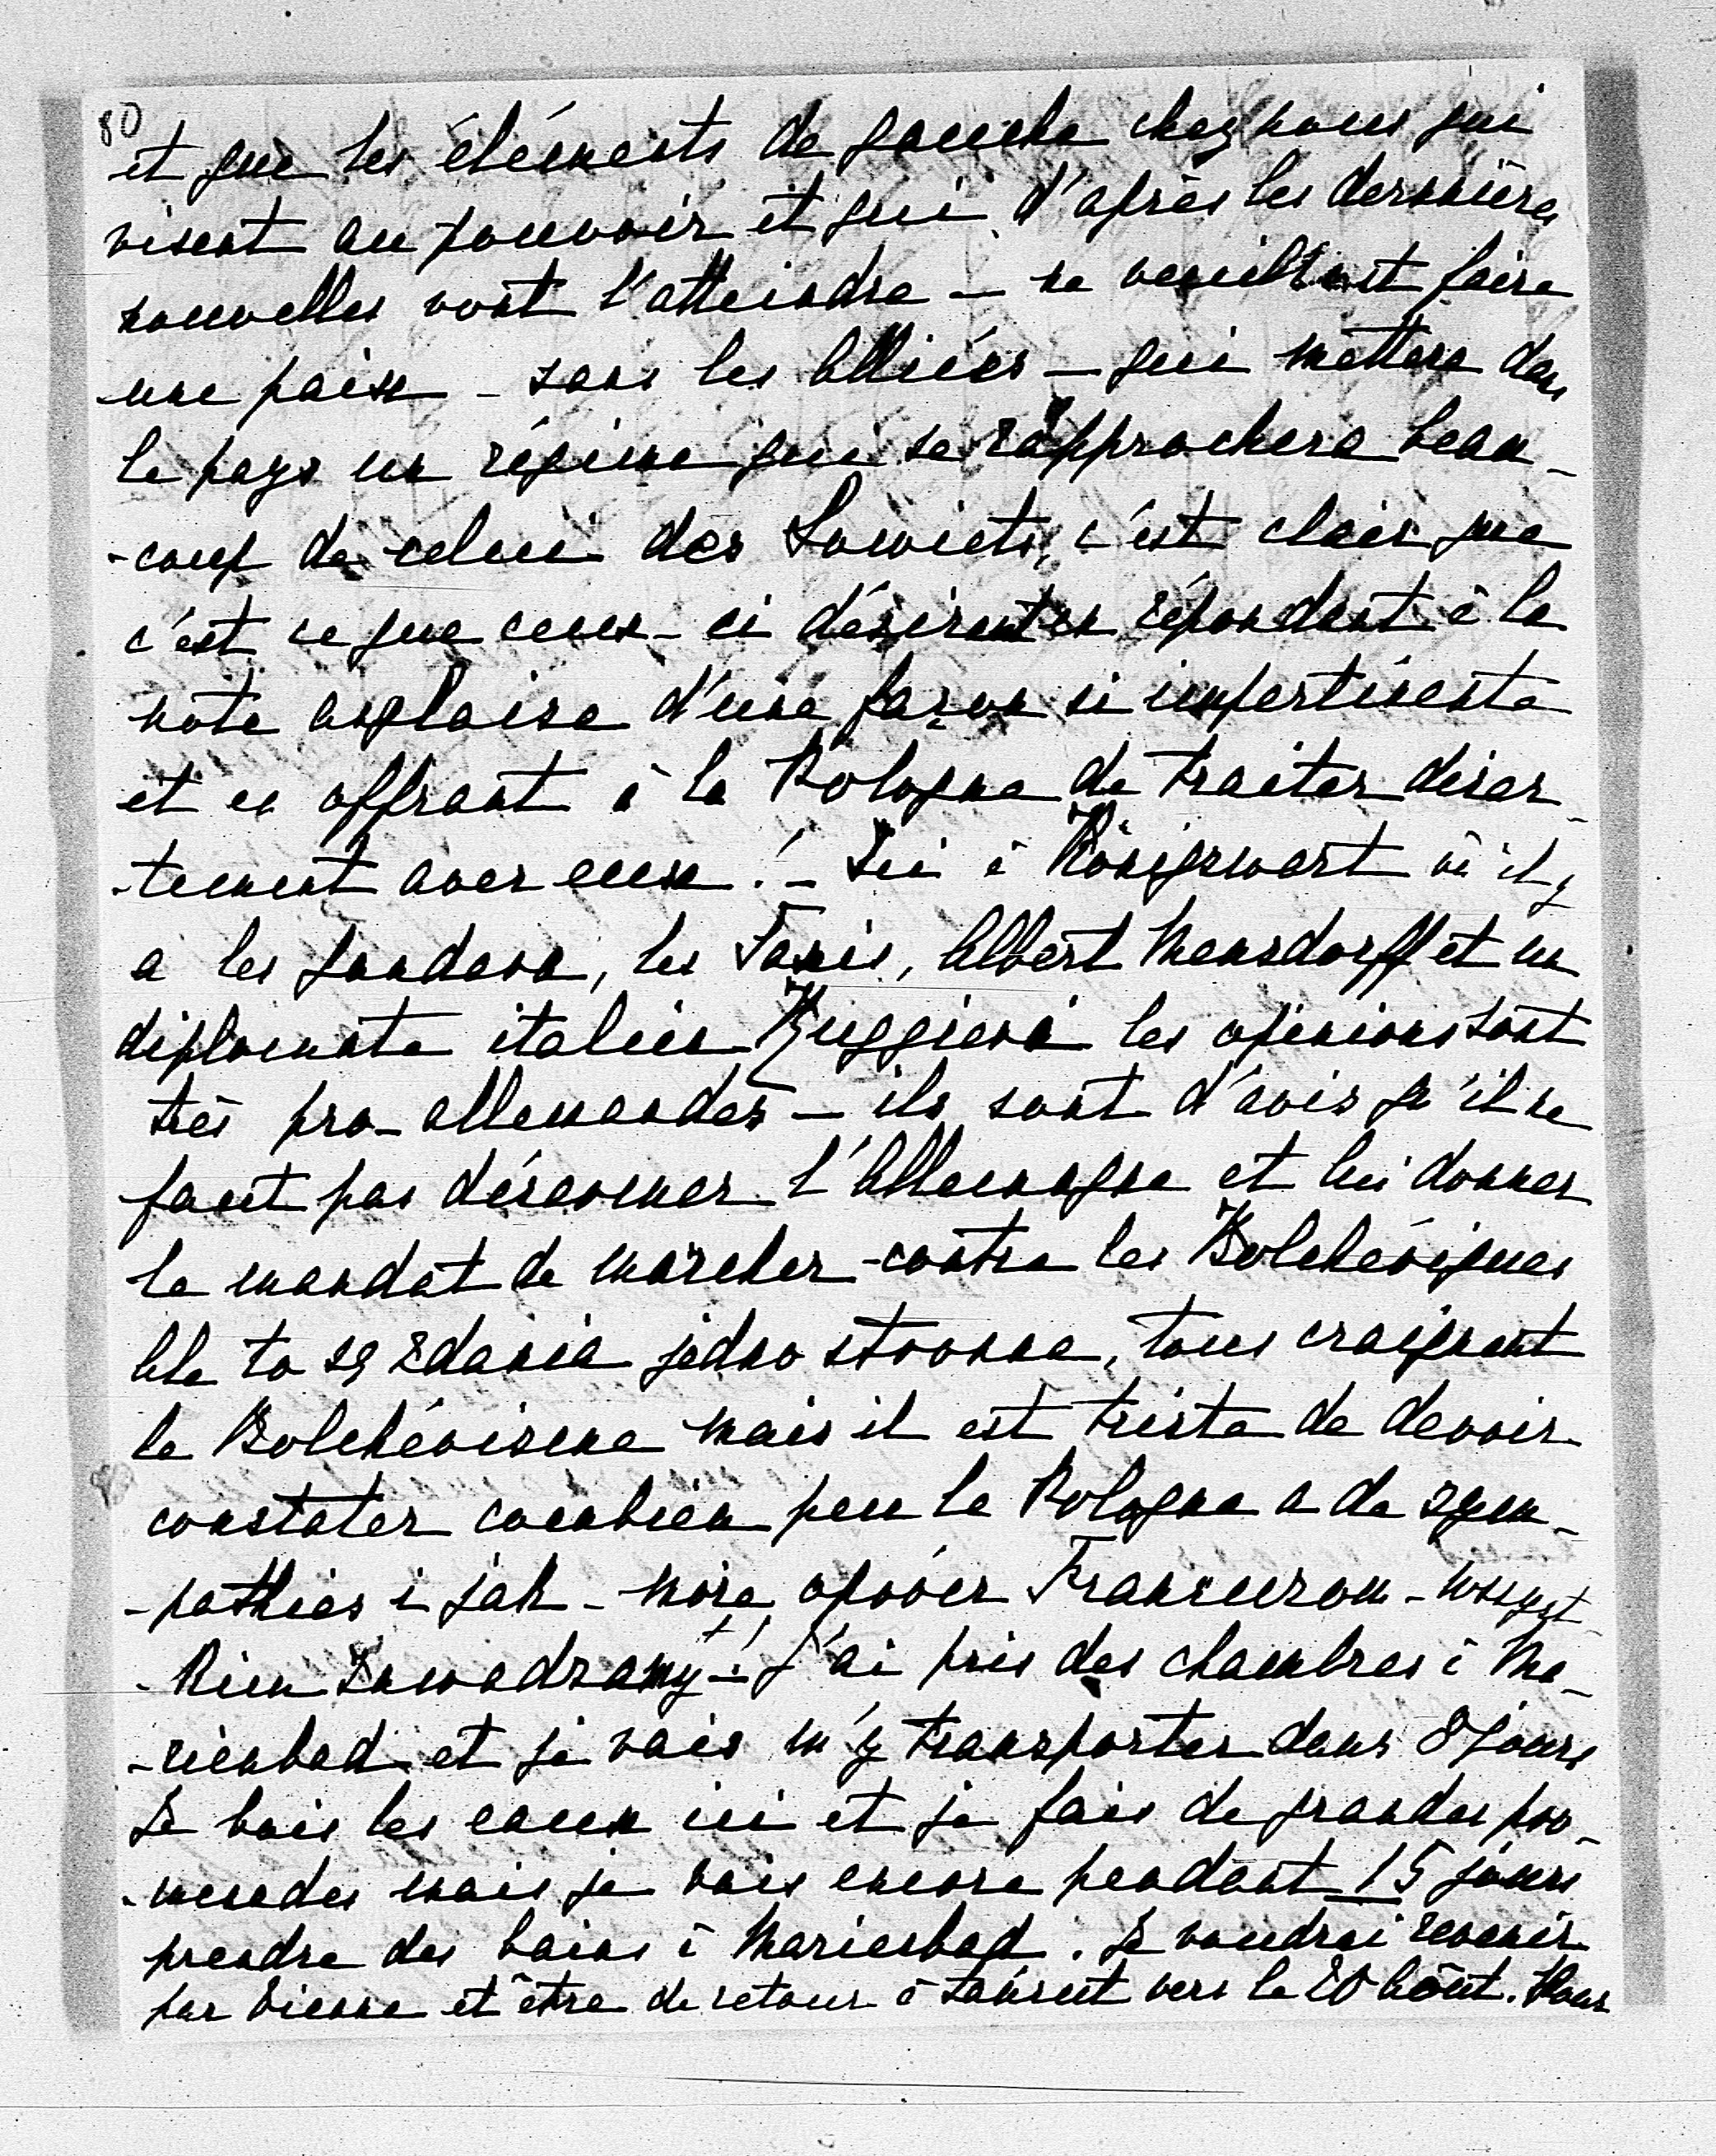 80
et que les éléments de gauche chez nous qui
visent au pouvoir et qui d'après les dernières
nouvelles vont l'atteindre – ne veuillent faire
une paix – sans les Alliés – qui mettera dans
le pays un régime qui se rapprochera beau-
-coup de celui des Sowiets, c'est clair que
c'est ce que ceux-ci désirent en répondant à la
note anglaise d'une façon si impertinente
et en offrant à la Pologne de traiter direc-
-tement avec eux! – Ici à Königswart où il y
a les , les Taxis, Albert Mensdorff et un
diplomate italien Ruggieri les opinions sont
très pro-allemandes – ils sont d'avis qu'il ne
faut pas désarmer l'Allemagne et lui donner
le mandat de marcher contre les Bolchéviques
Ale to są zdania jednostronne, tous craignent
le Bolchévisme mais il est triste de devoir
constater combien peu la Pologne a de sym-
-pathies i jak – może oprócz Francuzom – wszyst-
-kim zawadzamy – ! J'ai pris des chambres à Ma-
-rienbad et je vais m'y transporter dans 8 jours
Je bois les eaux ici et je fais de grandes pro-
-menades mais je vais encore pendant 15 jours
prendre des bains à Marienbad. Je voudrai revenir
par Vienne et être de retour à Łańcut vers le 20 Août. Pour